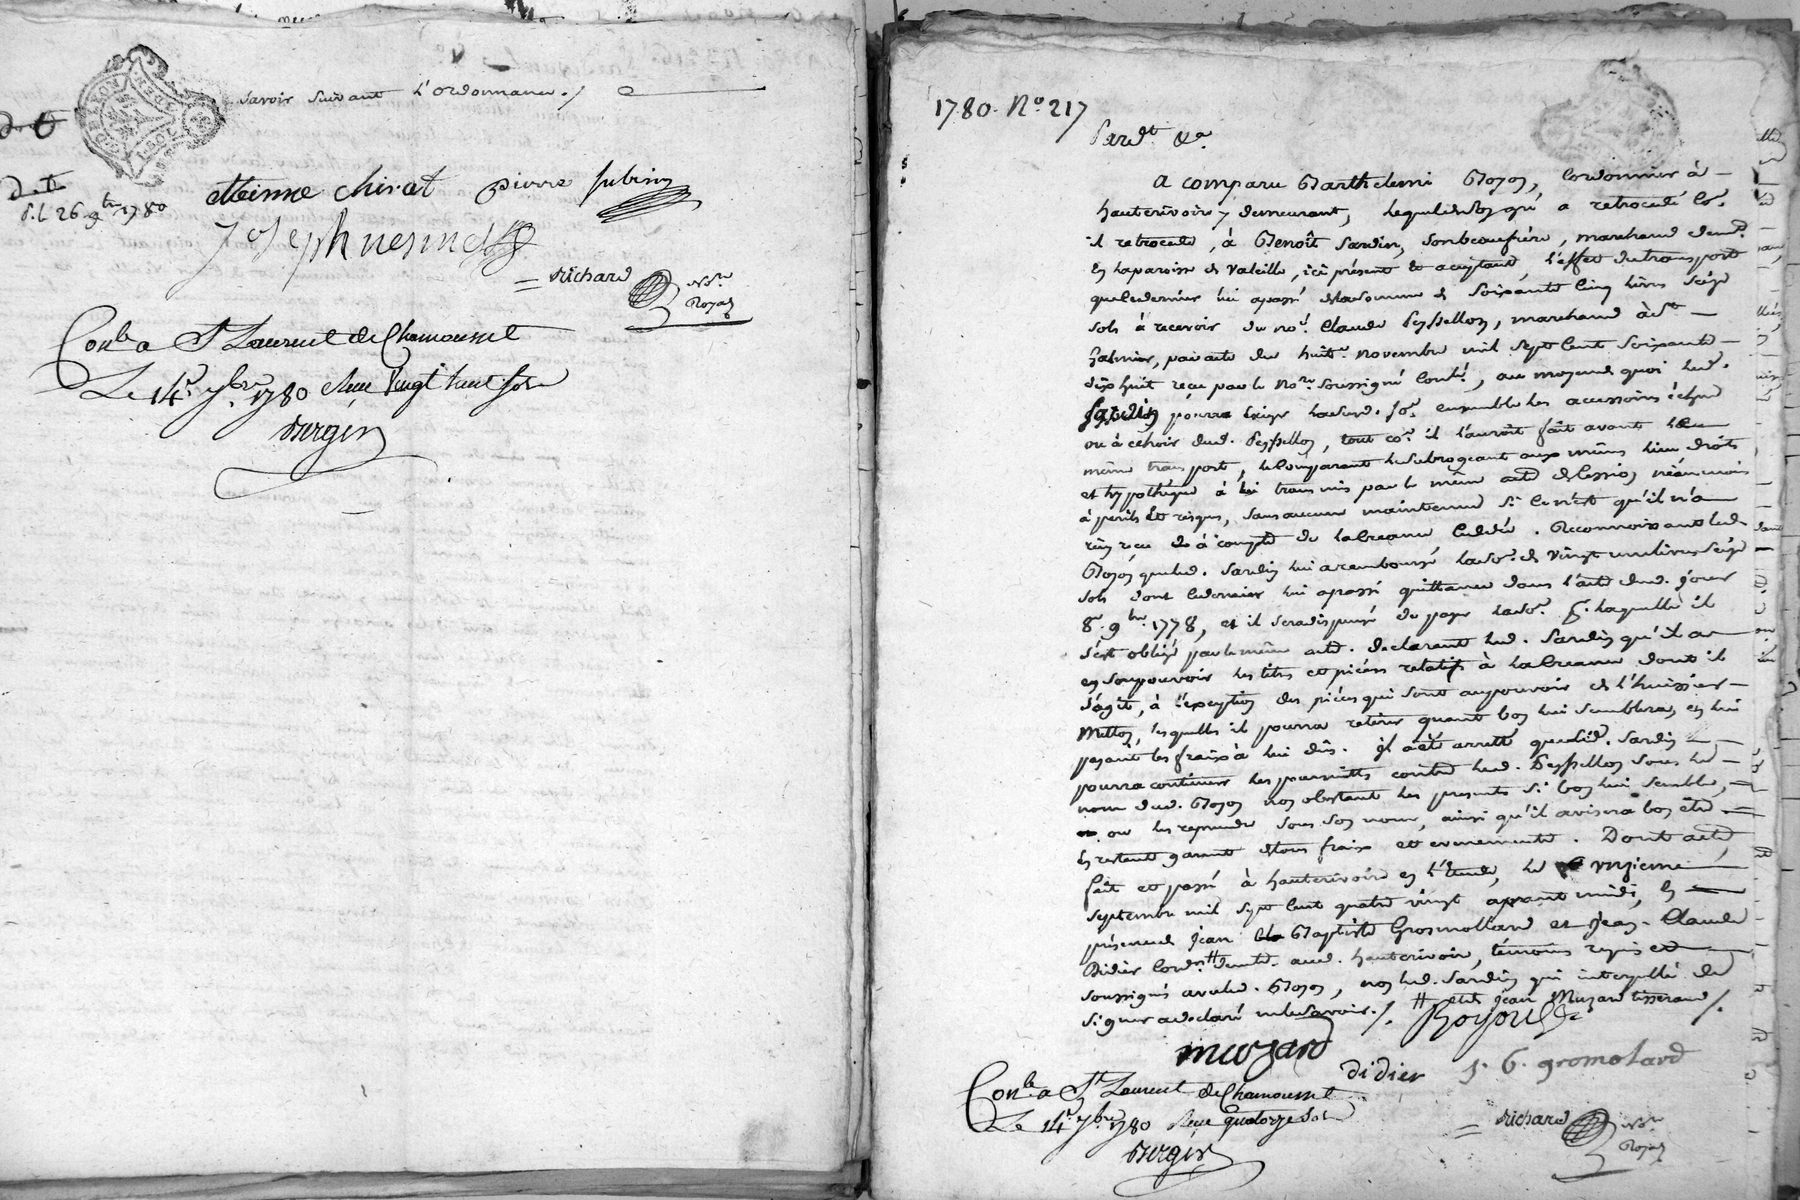 savoir suivant l'ordonnance ./.
D. t
D. t
d. l. 26 9bre 1780
etienne chirat pierre subrin
Joseph
= Richard Nore
Royal
Conle a St Laurent de Chamousset
Le 14e 7bre 1780 Reçu Vingt huit sols
Bergier
1780. No. 217
Pardt &a.
a comparu Barthelemi Boyon, Cordonnier à
hauterivoire y demeurant, lequel de son gré a retrocedé Co.
il retrocede, à Benoît Sardin, son beaufrère, marchand demt.
en la paroisse de Valeille, ici présent et acceptant, l'effet du transport
que ce dernier lui a passé de la somme de soixante cinq livres seize
sols à recevoir du no.é Claude Peyssellon, marchand à St
Galmier, par acte du huit.e novembre mil sept cent soixante
dix huit reçu par le no.re soussigné Conlé, au moyend quoi led.
Sardin pourra exiger lad. so.e ensemble les accessoires échus
ou à echoir dud. Peyssellon, tout co.e il l'auroit fait avant le
même transport, le Comparant le subrogeant aux mêmes lieu droits
et hypothèque à lui transmis par le même acte de Cession, néanmois
à perils et risques, sans aucune maintenue si ce n'est qu'il n'a
rien reçu à compte de la Creance Cedée. Reconnoissant led.
Boyon que led. Sardin lui a remboursé la so.e de vingt une livres seize
sols dont ce dernier lui a passé quittance dans l'acte dud. jour
8e. 9bre. 1778, et il sera dispensé de payer la so.e p. laquelle il
s'est obligé par le même acte. declarant led. Sardin qu'il a
en son pouvoir les titres et pièces relatifs à la Creance dont il
s'agit, à l'exception des pièces qui sont au pouvoir de l'huissier
Metton, lesquelles il pourra retirer quant bon lui semblera, en lui
payant les fraix à lui dûs. il a été arretté que led. Sardin
pourra continuer les poursuittes contre led. Peyssellon sous le
nom dud. Boyon non obstant les presents si bon lui semble,
ou les reprendre sous son nom, ainsi qu'il avisera bon être
en restant garant de tous fraix et evenements. Dont acte,
fait et passé à hauterivoire en l'etude, le onzieme
septembre mil sept cent quatre vingt aprant midi, en
présence Jean Baptiste Grosmollard et Jean-Claude
Didier Cordrs # demts. aud. hauterivoire, témoins requis et
soussignés avec led. Boyon, non led. Sardin qui interpellé de
signer a declaré ne le savoir./. # et de Jean Muzard tisserand /.
Boyon
muzard
didier j. b. gromolard
Conle a St Laurent de Chamousset
Le 14e 7bre 1780 Reçu Quatorze sols
Bergier
= Richard Nore
Royal